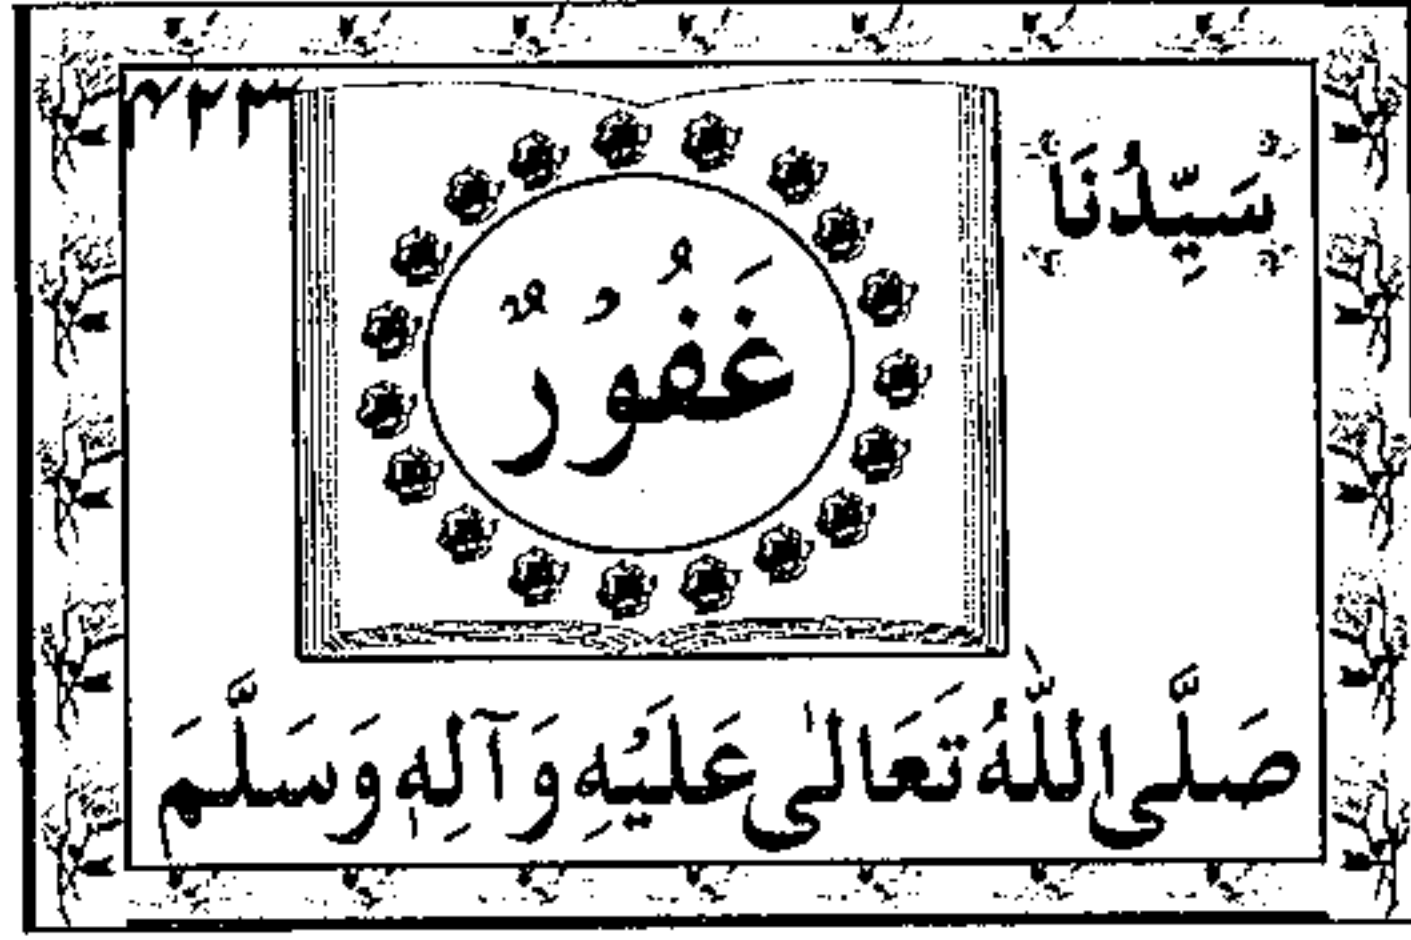 سَيِّدُنَا
غَفُوْرٌ
صَلَّى اللّٰهُ تَعَالٰى عَلَيْهِ وَآلِهٖ وَسَلَّمَ